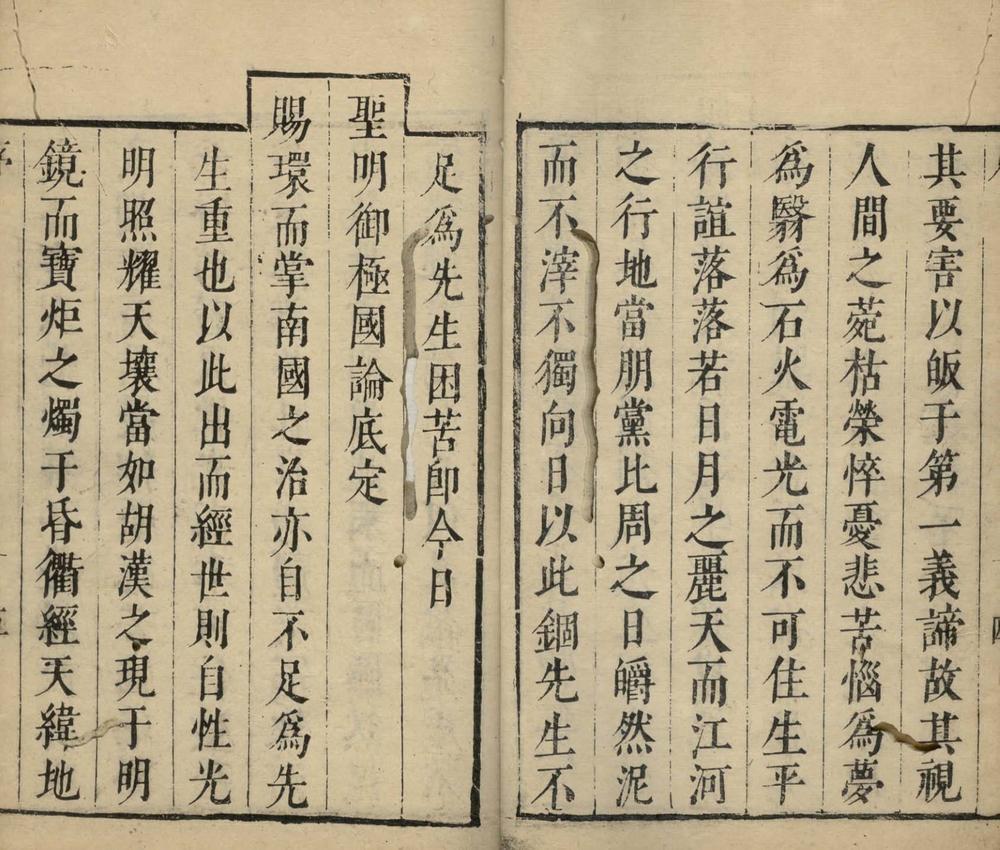 其要害以皈于第一義諦故其視
人間之菀枯榮悴憂悲苦惱為夢
為翳為石火電光而不可住生平
行誼落落若日月之麗天而江河
之行地當朋黨比周之日皭然泥
而不滓不獨向日以此錮先生不
足為先生困苦卽今日
聖明御極國論底定
賜環而掌南國之治亦自不足為先
生重也以此出而經世則自性光
明照耀天壤當如胡漢之現于明
鏡而寶炬之燭于昏衢經天緯地